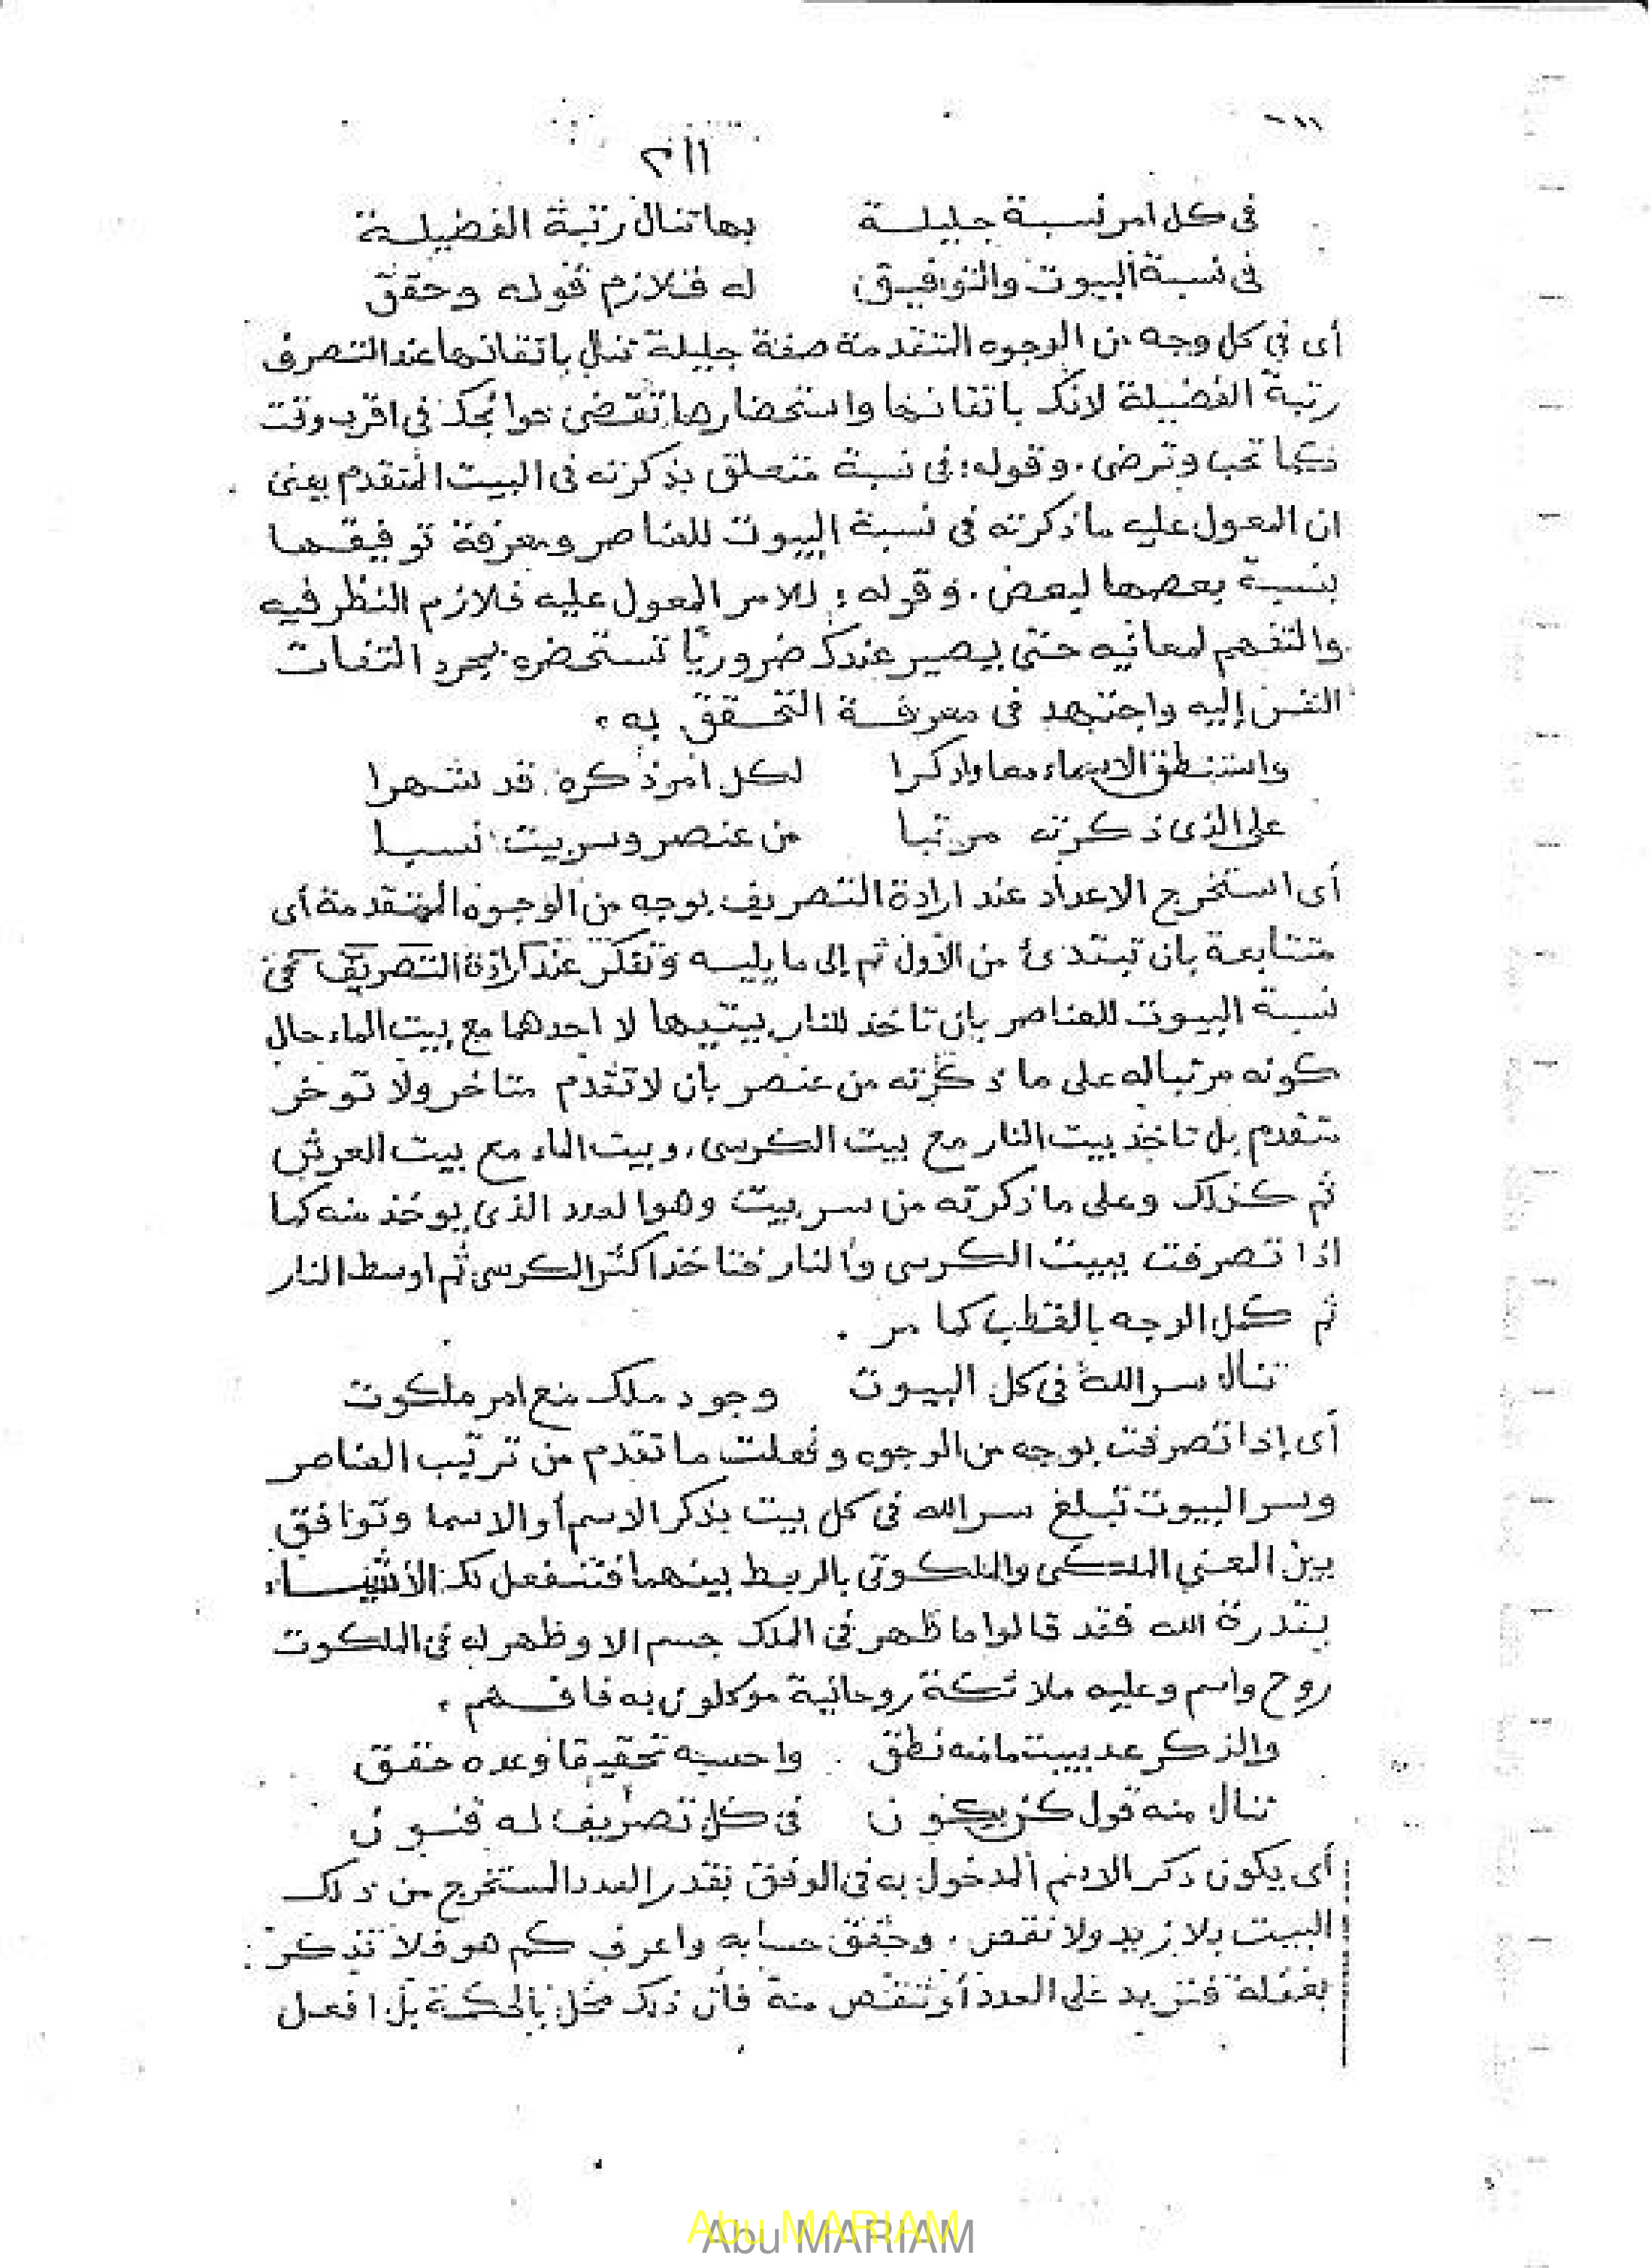 ٢١١
فى كل امر نسبة جليلة بها تنال رتبة الفضيلة
فى نسبة البيوت والتوفيق له فلازم قوله وحقق
أى فى كل وجه من الوجوه المتقدمة صفة جليلة تنال باتقانها عند التصرف
رتبة الفضيلة لانك باتقانها واستحضارها تقتضى حوائجك فى اقرب وقت
كما تحب وترضى . وقوله : فى نسبة متعلق بذكرته فى البيت المتقدم يعنى
ان المعول عليه ما ذكرته فى نسبة البيوت للعناصر ومعرفة توفيقها
بنسبة بعضها لبعض . وقوله : للامر المعول عليه فلازم النظر فيه
والتفهم لمعانيه حتى يصير عندك ضروريًا تستحضره بمجرد التفات
النفس إليه واجتهد فى معرفة التحقق به .
واستنطق الاسماء معا واذكرا لكل امر ذكره قد شهرا
على الذى ذكرته مرتبا من عنصر وسر بيت نسبا
أى استخرج الاعداد عند ارادة التصريف بوجه من الوجوه المتقدمة أى
متتابعة بان تبتدئ من الأول ثم إلى ما يليه وتفكر عند ارادة التصريف فى
نسبة البيوت للعناصر بان تاخذ للنار بيتيها لا احدهما مع بيت الماء حال
كونه مرتبا له على ما ذكرته من عنصر بأن لا تقدم متاخر ولا توخر
متقدم بل تاخذ بيت النار مع بيت الكرسى ، وبيت الماء مع بيت العرش
ثم كذلك وعلى ما ذكرته من سر بيت وهو العدد الذى يوخذ منه كما
اذا تصرفت ببيت الكرسى والنار فتاخذ اكثر الكرسى ثم اوسط النار
ثم كمل الوجه بالقطب كما مر .
تنال سر الله فى كل البيوت وجود ملك مع امر ملكوت
أى إذا تصرفت بوجه من الوجوه وفعلت ما تقدم من ترتيب العناصر
وسر البيوت تبلغ سر الله فى كل بيت بذكر الاسم أو الاسما وتوافق
بين المعنى الملكى والملكوتى بالربط بينهما فتنفعل لك الأشياء
بقدرة الله فقد قالوا ما ظهر فى الملك جسم الا وظهر له فى الملكوت
روح واسم وعليه ملائكة روحانية موكلون به فافهم .
والذكر عد بيت ما منه نطق واحسبه تحقيقا وعده حقق
تنال منه قول كن يكون فى كل تصريف له فنون
أى يكون ذكر الاسم المدخول به فى الوفق بقدر العدد المستخرج من ذلك
البيت بلا زيد ولا نقص . وحقق حسابه واعرف كم هو فلا تذكر
بغفلة فتزيد على العدد أو تنقص منه فأن ذلك مخل بالحكمة بل افعل
Abu MARIAM